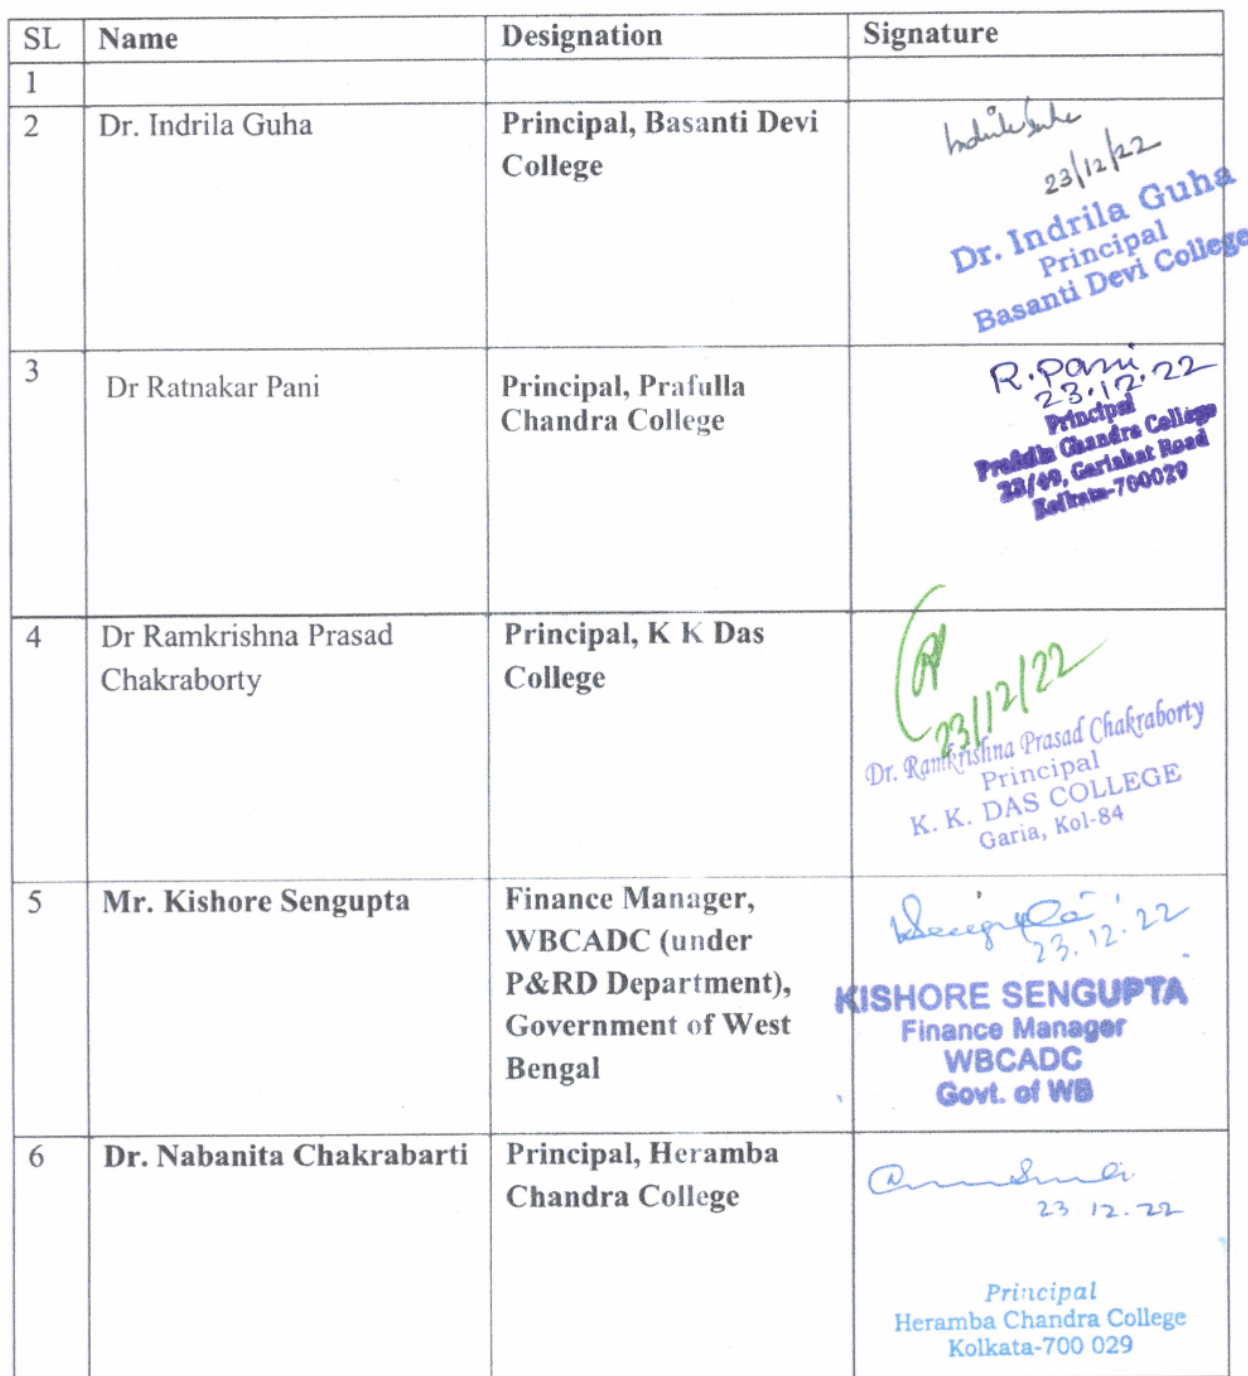 SL Name Designation Signature
1
2 Dr. Indrila Guha Principal, Basanti Devi
College
Indrila Guha
23/12/22
Dr. Indrila Guha
Principal
Basanti Devi College
3 Dr Ratnakar Pani Principal, Prafulla
Chandra College
R. Pani
23.12.22
Principal
Prafulla Chandra College
23/49, Gariahat Road
Kolkata-700029
4 Dr Ramkrishna Prasad Principal, K K Das
Chakraborty College
23/12/22
Dr. Ramkrishna Prasad Chakraborty
Principal
K. K. DAS COLLEGE
Garia, Kol-84
5 Mr. Kishore Sengupta Finance Manager,
WBCADC (under
P&RD Department),
Government of West
Bengal
KSengupta
23.12.22
KISHORE SENGUPTA
Finance Manager
WBCADC
Govt. of WB
6 Dr. Nabanita Chakrabarti Principal, Heramba
Chandra College
23.12.22
Principal
Heramba Chandra College
Kolkata-700 029